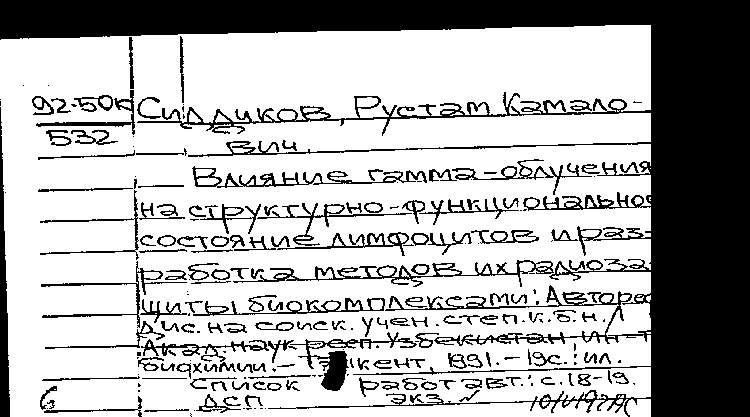 92-50к Сиддиков, Рустам Камало-
532
вич.
Влияние гамма-облучения
на структурно-функциональное
состояние лимфоцитов и раз-
работка методов их радиоза-
щиты биокомплексами: Авторе
дис. на соиск. учен. степ. к.б.н. /
Акад. наук респ. Узбекистан, Ин-т
биохимии. - Ташкент, 1991. - 19с.: ил.
Список работ авт.: с. 18-19.
б ДСП экз.